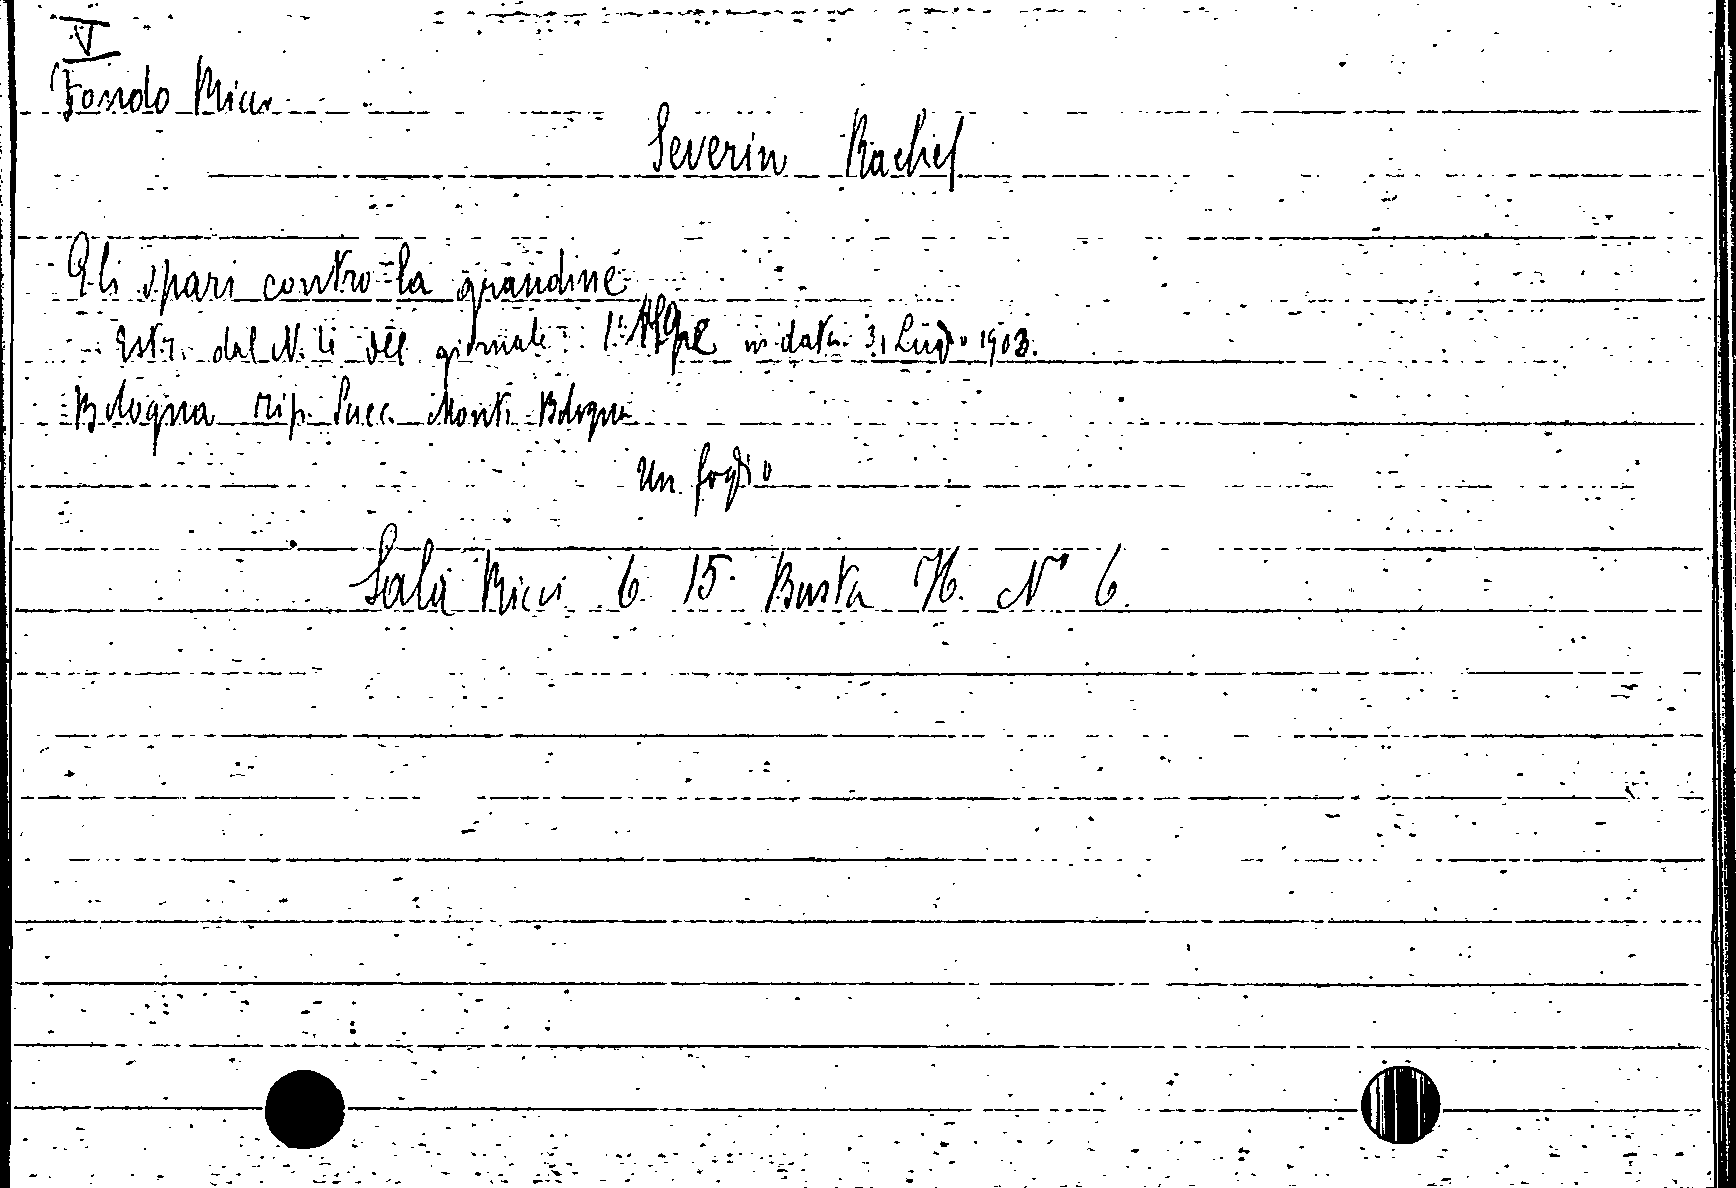 V
Fondo Ricci
Severin Rachel
Gli spari contro la grandine
Estr. dal N. del giornale: l'Alpe in data 31 Luglio 1903.
Bologna tip. Succ. Monti Bologna
Un foglio
Sala Ricci 6. 15. Busta H. N° 6.